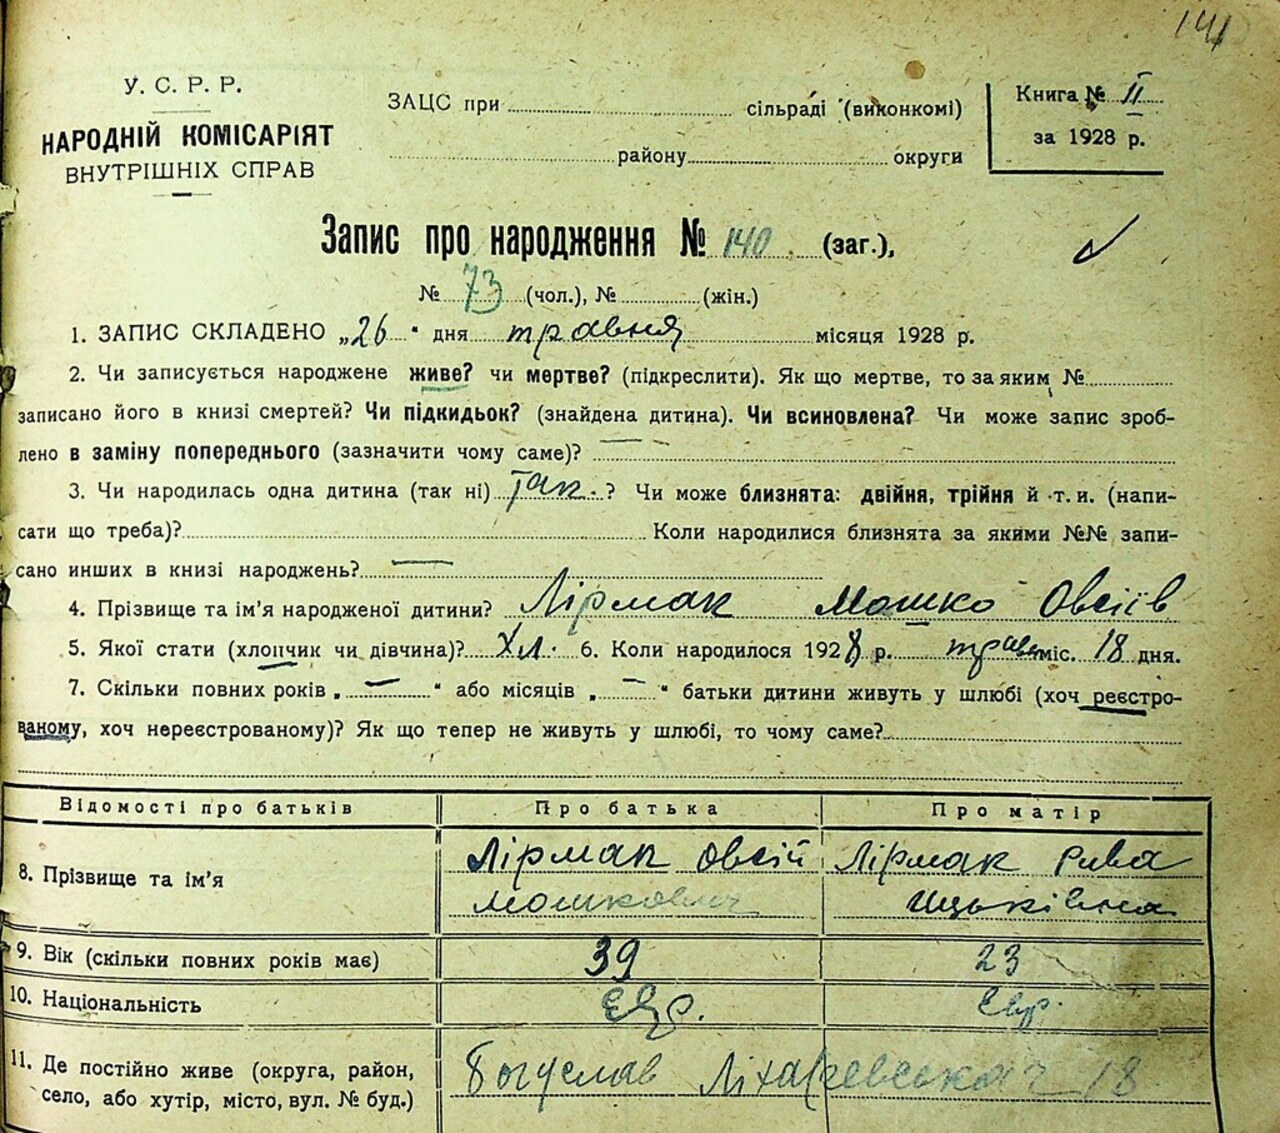 141
У. С. Р. Р.
НАРОДНІЙ КОМІСАРІЯТ
ВНУТРІШНІХ СПРАВ
ЗАЦС при сільраді (виконкомі)
району округи
Книга № II
за 1928 р.
Запис про народження № 140 (заг.),
№ 73 (чол.), № (жін.)
1. ЗАПИС СКЛАДЕНО „26" дня травня місяця 1928 р.
2. Чи записується народжене живе? чи мертве? (підкреслити). Як що мертве, то за яким №
записано його в книзі смертей? Чи підкидьок? (знайдена дитина). Чи всиновлена? Чи може запис зроб-
лено в заміну попереднього (зазначити чому саме)? —
3. Чи народилась одна дитина (так ні) Так. ? Чи може близнята: двійня, трійня й т. и. (напи-
сати що треба)? Коли народилися близнята за якими №№ запи-
сано инших в книзі народжень? —
4. Прізвище та ім'я народженої дитини? Лірмак Мошко Овсіїв
5. Якої стати (хлопчик чи дівчина)? Хл. 6. Коли народилося 1928 р. трав. міс. 18 дня.
7. Скільки повних років „ — " або місяців „ — " батьки дитини живуть у шлюбі (хоч реєстро-
ваному, хоч нереєстрованому)? Як що тепер не живуть у шлюбі, то чому саме?
Відомості про батьків Про батька Про матір
8. Прізвище та ім'я Лірмак Овсій Мошкович Лірмак Рива Ицьківна
9. Вік (скільки повних років має) 39 23
10. Національність Євр. Євр.
11. Де постійно живе (округа, район,
село, або хутір, місто, вул. № буд.) Богуслав 18